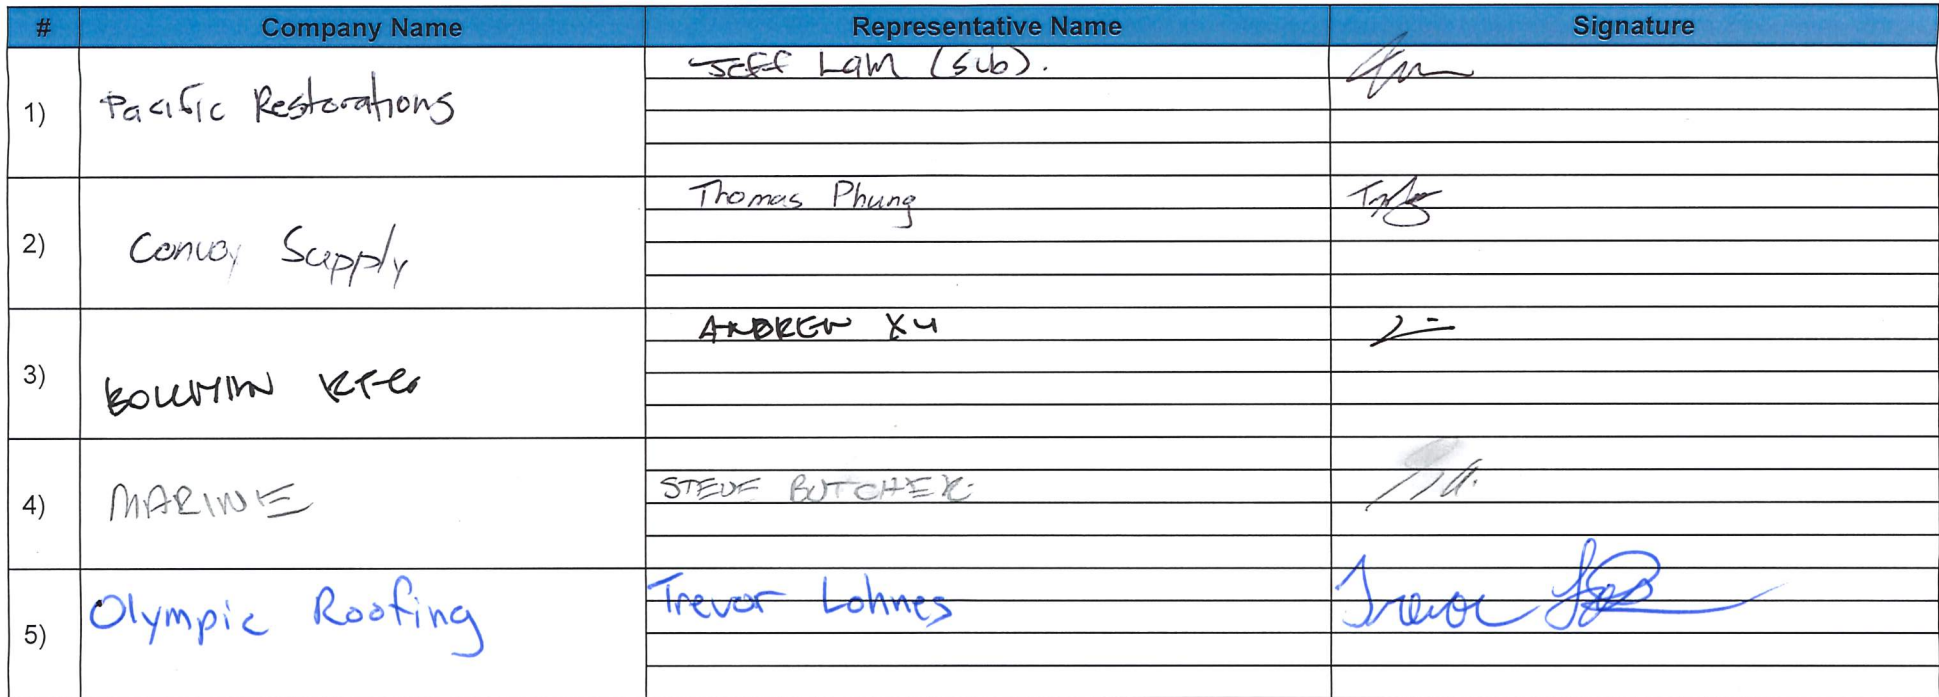 # Company Name Representative Name Signature
1) Pacific Restorations Jeff Lam (sub).
2) Convoy Supply Thomas Phung
3) ANDREW XU
4) MARINE STEVE BUTCHER
5) Olympic Roofing Trevor Lohnes Trevor